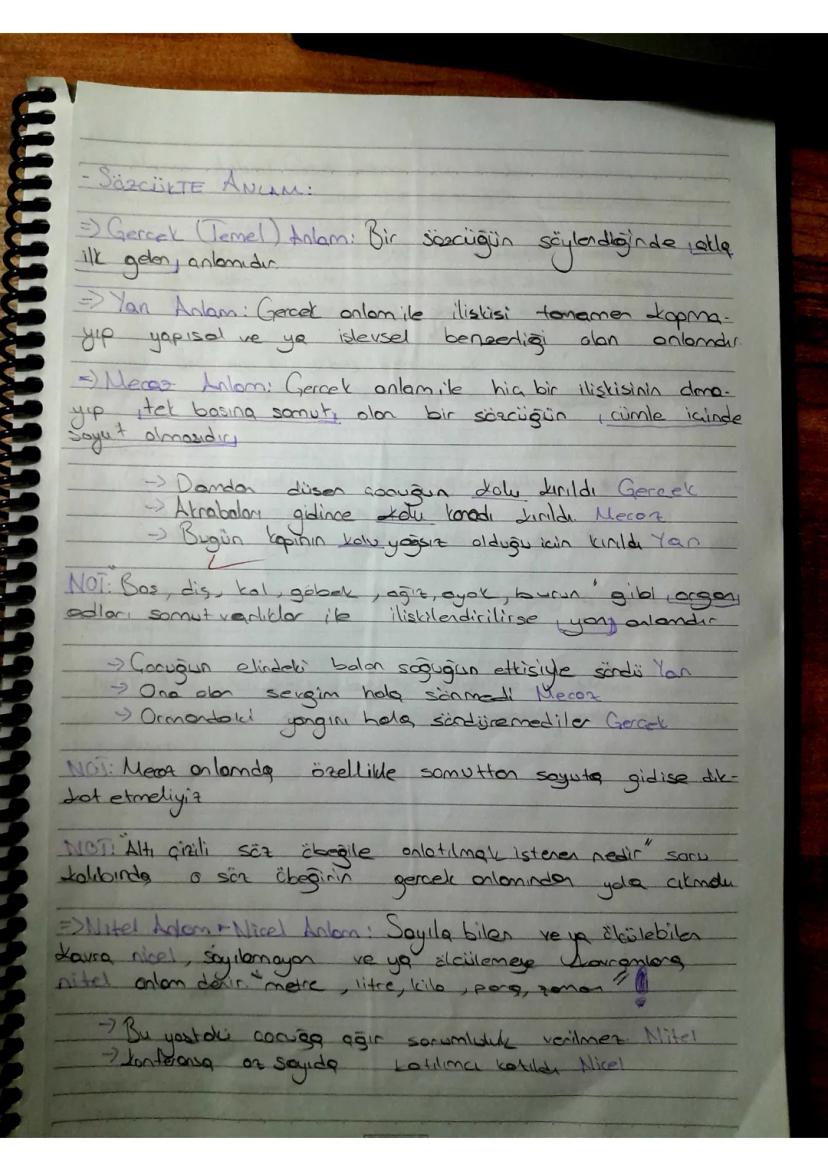 - SÖZCÜKTE ANLAM:
=> Gercek (Temel) Anlam: Bir sözcüğün söylendiğinde akla
ilk gelen anlamıdır.
=> Yan Anlam: Gercek anlam ile iliskisi tamamen kopma-
yıp yapısal ve ya islevsel benzerliği olan anlamdır.
=> Mecaz Anlam: Gercek anlam ile hic bir iliskisinin olma-
yıp tek basına somut olan bir sözcüğün cümle icinde
soyut olmasıdır
-> Damdan düsen cocuğun kolu kırıldı Gercek
-> Akrabaları gidince kolu kanadı kırıldı Mecaz
-> Bugün kapının kolu yağsız olduğu icin kırıldı Yan
NOT: "Bas, dis, kol, göbek, ağız, ayak, burun" gibi organ
adları somut varlıklar ile iliskilendirilirse yan anlamdır
-> Cocuğun elindeki balon soğuğun etkisiyle söndü Yan
-> Ona olan sevgim hala sönmedi Mecaz
-> Ormandaki yangını hala söndüremediler Gercek
NOT: Mecaz anlamda özellikle somuttan soyuta gidise dik-
kat etmeliyiz
NOT: "Altı çizili söz öbeğile anlatılmak istenen nedir" soru
kalıbında o söz öbeğinin gercek anlamından yola cıkmalı
=> Nitel Anlam + Nicel Anlam: Sayıla bilen ve ya ölcülebilen
kavra nicel, sayılamayan ve ya ölcülemeye kavramlara
nitel anlam denir. "metre, litre, kilo, para, zaman" !
-> Bu yastaki cocuğa ağır sorumluluk verilmez Nitel
-> Konferansa az sayıda katılımcı katıldı Nicel